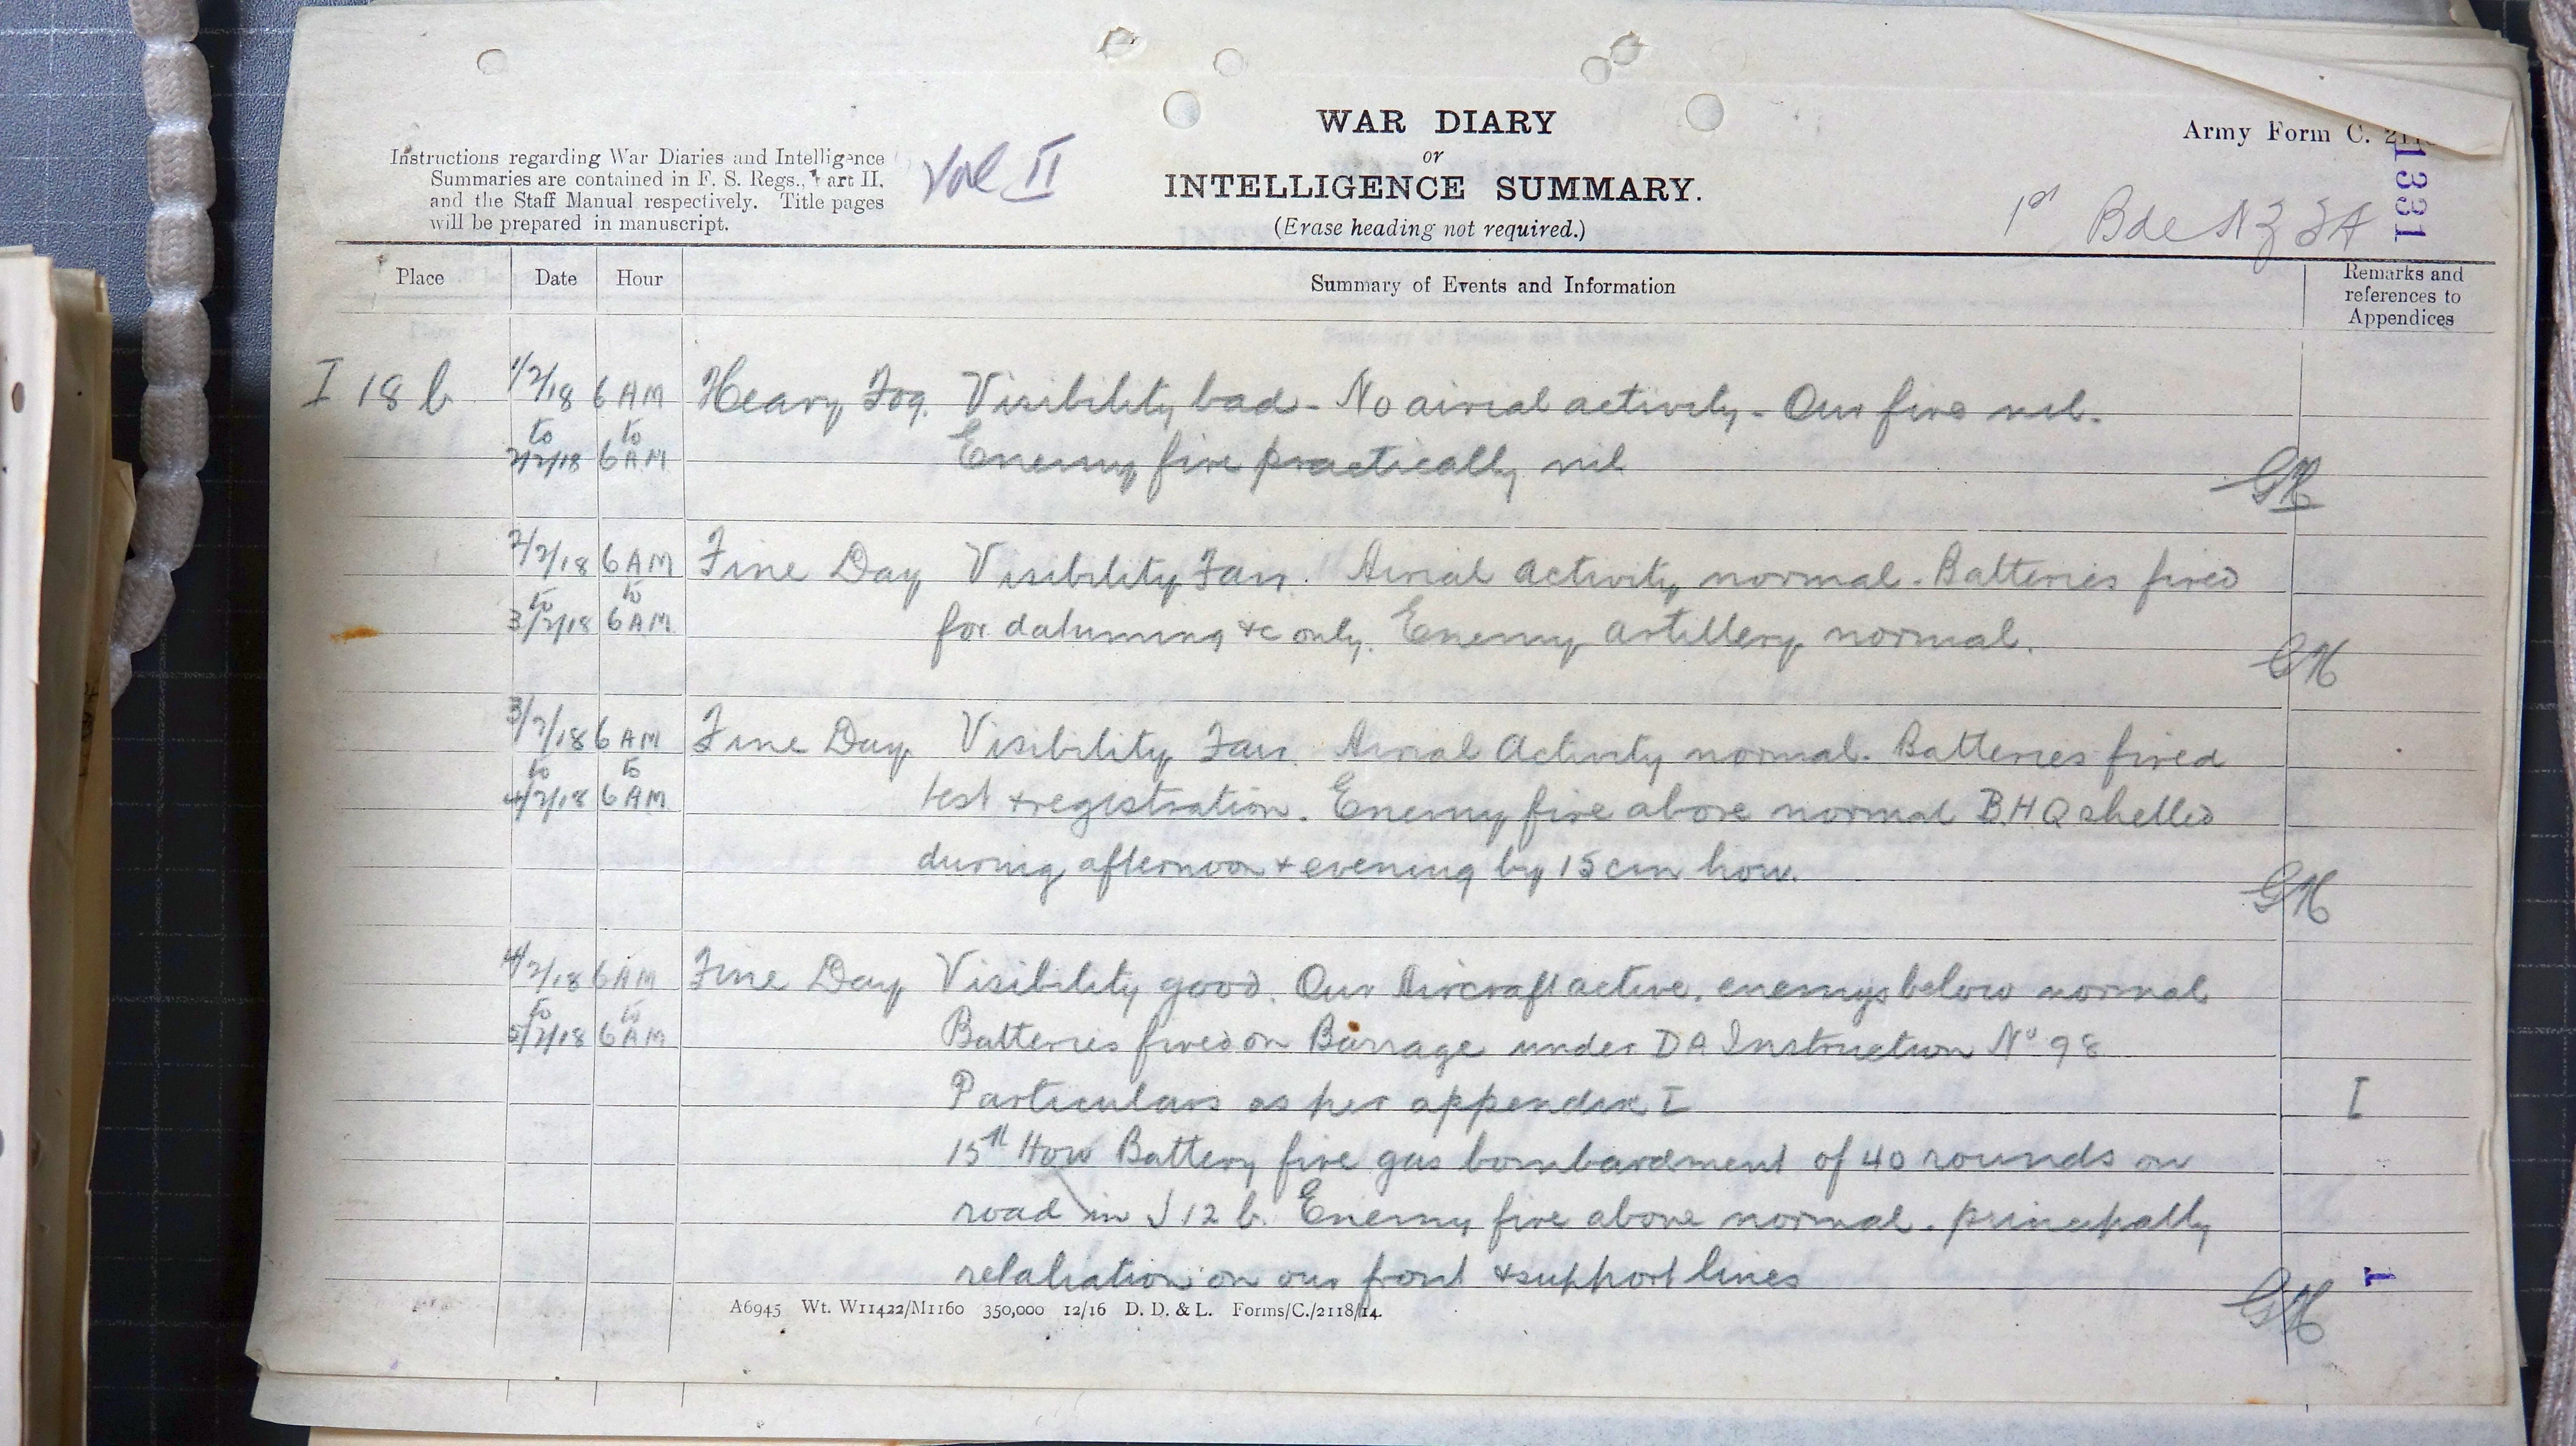 WAR DIARY
or
INTELLIGENCE SUMMARY.
(Erase heading not required.)
Instructions regarding War Diaries and Intelligence
Summaries are contained in F. S. Regs., Part II.
and the Staff Manual respectively. Title pages
will be prepared in manuscript.
Vol II
Army Form C.
1331
1st Bde N Z F A
Place Date Hour Summary of Events and Information Remarks and
references to
Appendices
I 18 b 1/2/18 6 AM Heavy Fog. Visibility bad - No airial activity - Our fire nil.
to to
2/2/18 6 AM Enemy fire practically nil
GK
2/2/18 6 AM Fine Day Visibility Fair. Airial activity normal. Batteries fired
to to
3/2/18 6 AM for datuming &c only. Enemy artillery normal.
GK
3/2/18 6 AM Fine Day Visibility Fair. Airial Activity normal. Batteries fired
to to
4/2/18 6 AM test & registration. Enemy fire above normal B.H.Q shelled
during afternoon & evening by 15 cm how.
GK
4/2/18 6 AM Fine Day Visibility good. Our Aircraft active. enemys below normal
to to
5/2/18 6 AM Batteries fired on Barrage under DA Instruction No 98
Particulars as per appendix I I
15th How Battery fire gas bombardment of 40 rounds on
road in J 12 b. Enemy fire above normal. principally
retaliation on our front & support lines
GK
1
A6945 Wt. W11422/M1160 350,000 12/16 D. D. & L. Forms/C./2118/14.